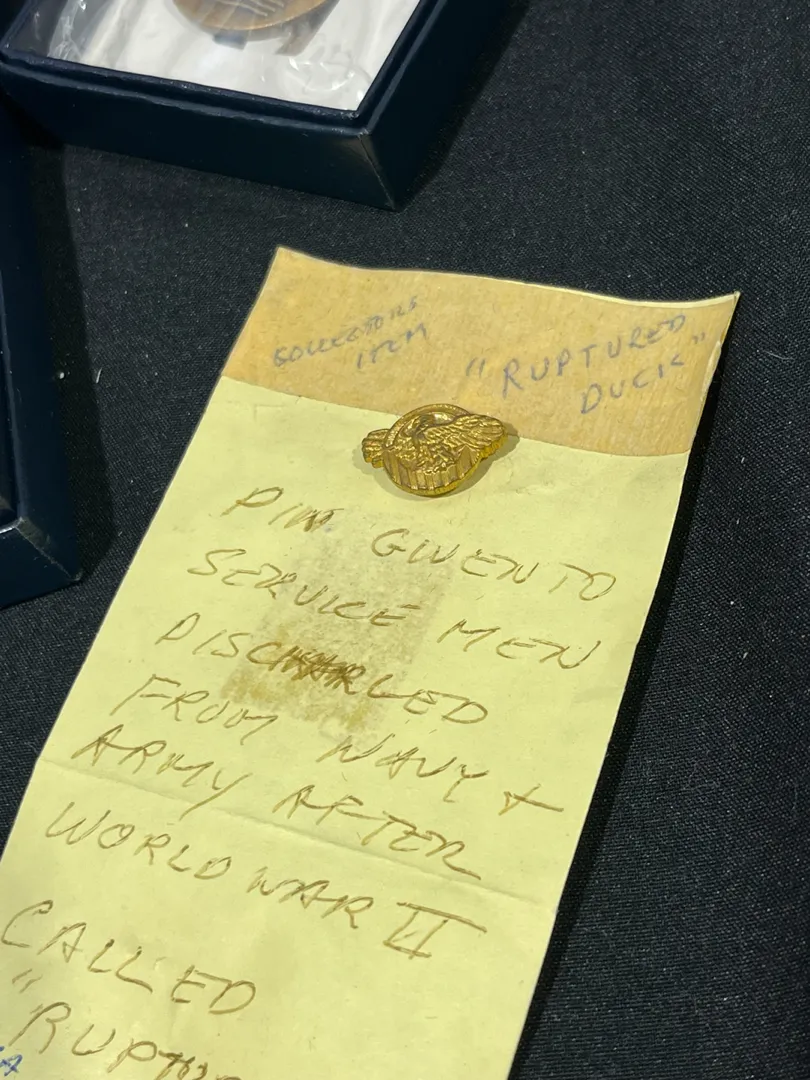 COLLECTORS
ITEM
"RUPTURED
DUCK"
PIN GIVEN TO
SERVICE MEN
DISCHARGED
FROM NAVY +
ARMY AFTER
WORLD WAR II
CALLED
"RUPTU